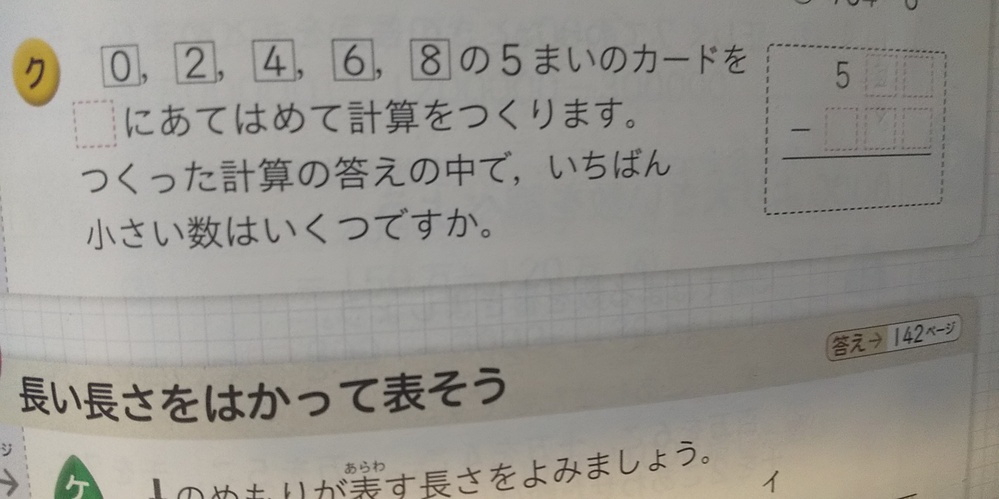 ク 0, 2, 4, 6, 8の5まいのカードを
□にあてはめて計算をつくります。
つくった計算の答えの中で, いちばん
小さい数はいくつですか。
5□□
−□□□
答え→142ページ
長い長さをはかって表そう
ケ
のめもりが表す長さをよみましょう。
あらわ
イ